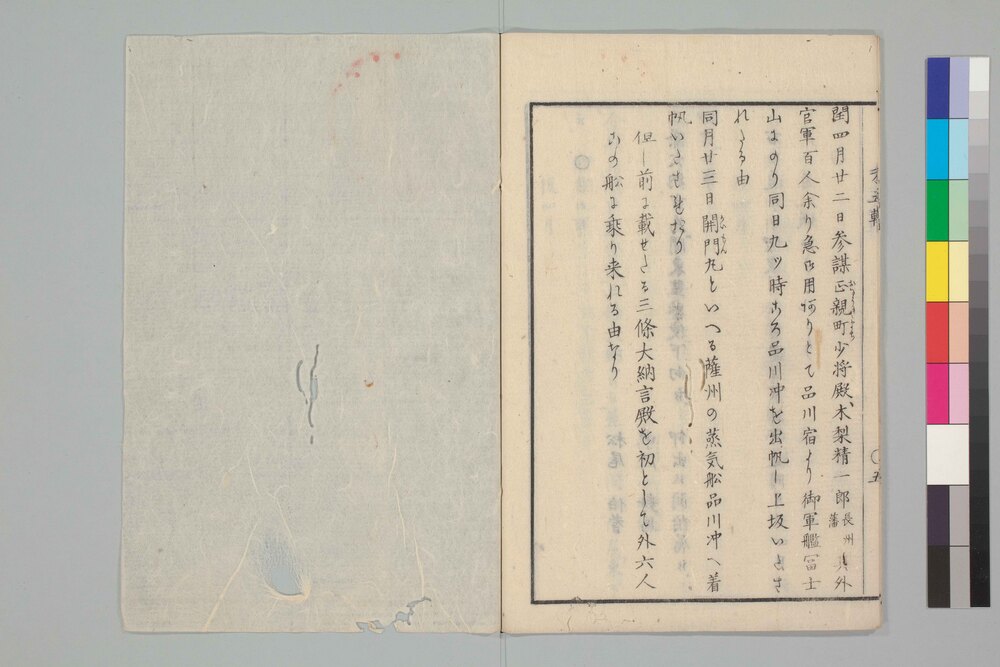 閏四月廿二日参謀正親町少将殿、木梨精一郎長州藩其外
おゝぎまち
官軍百人余り急御用有りとて品川宿より御軍艦冨士
山にのり同日九ツ時ころ品川沖を出帆し上坂いたさ
れたる由
同月廿三日開門丸といへる薩州の蒸気舩品川沖へ着
かいもん
帆いたしをれり
但し前に載せたる三條大納言殿を初として外六人
この舩に乗り来れる由なり
〇五